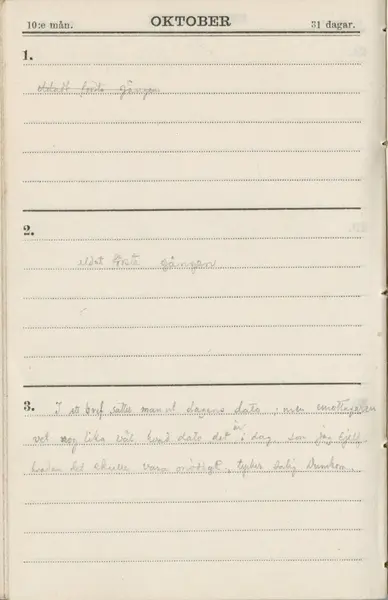 10:e mån.
OKTOBER
31 dagar.
1.
eldat första gången
2.
eldat första gången
3. I ett bref sätter man ut dagens dato; men emottagaren
vet nog lika väl hvad dato det är i dag, som jag sjelf,
hvadan det skulle vara onödigt, tycker